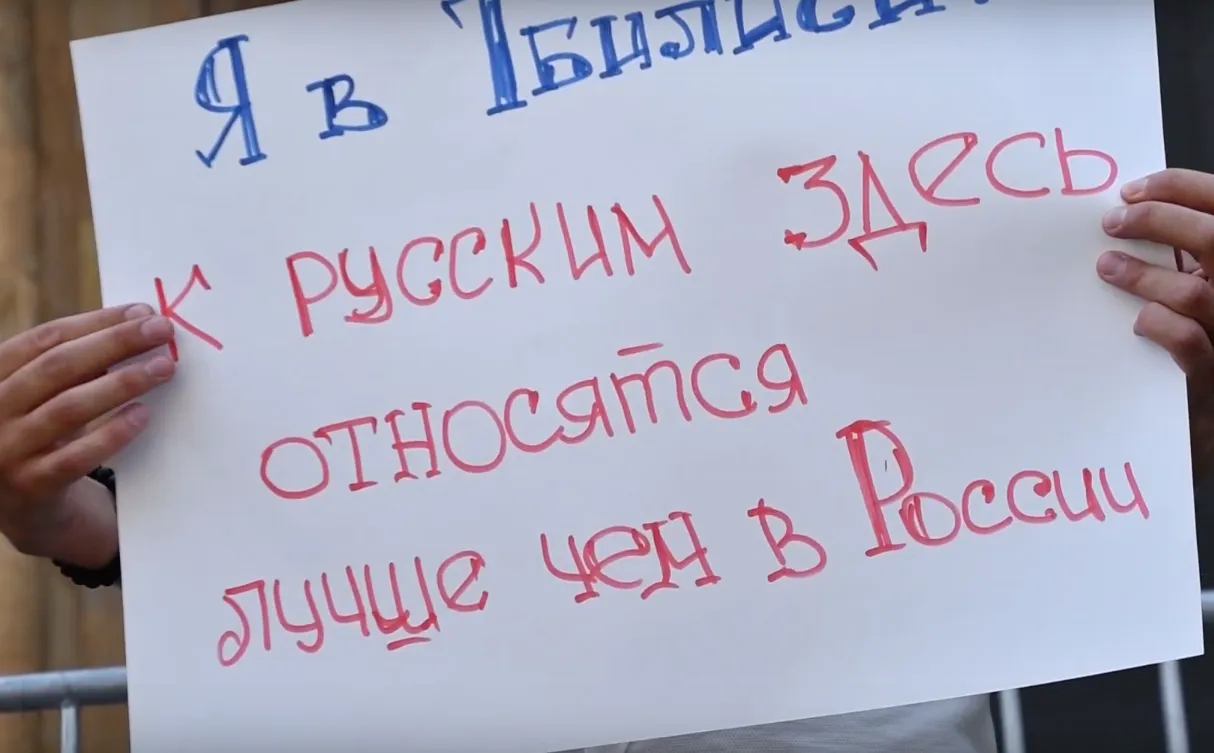 Я в Тбилиси!
К РУССКИМ ЗДЕСЬ
ОТНОСЯТСЯ
ЛУЧШЕ ЧЕМ В РОССИИ